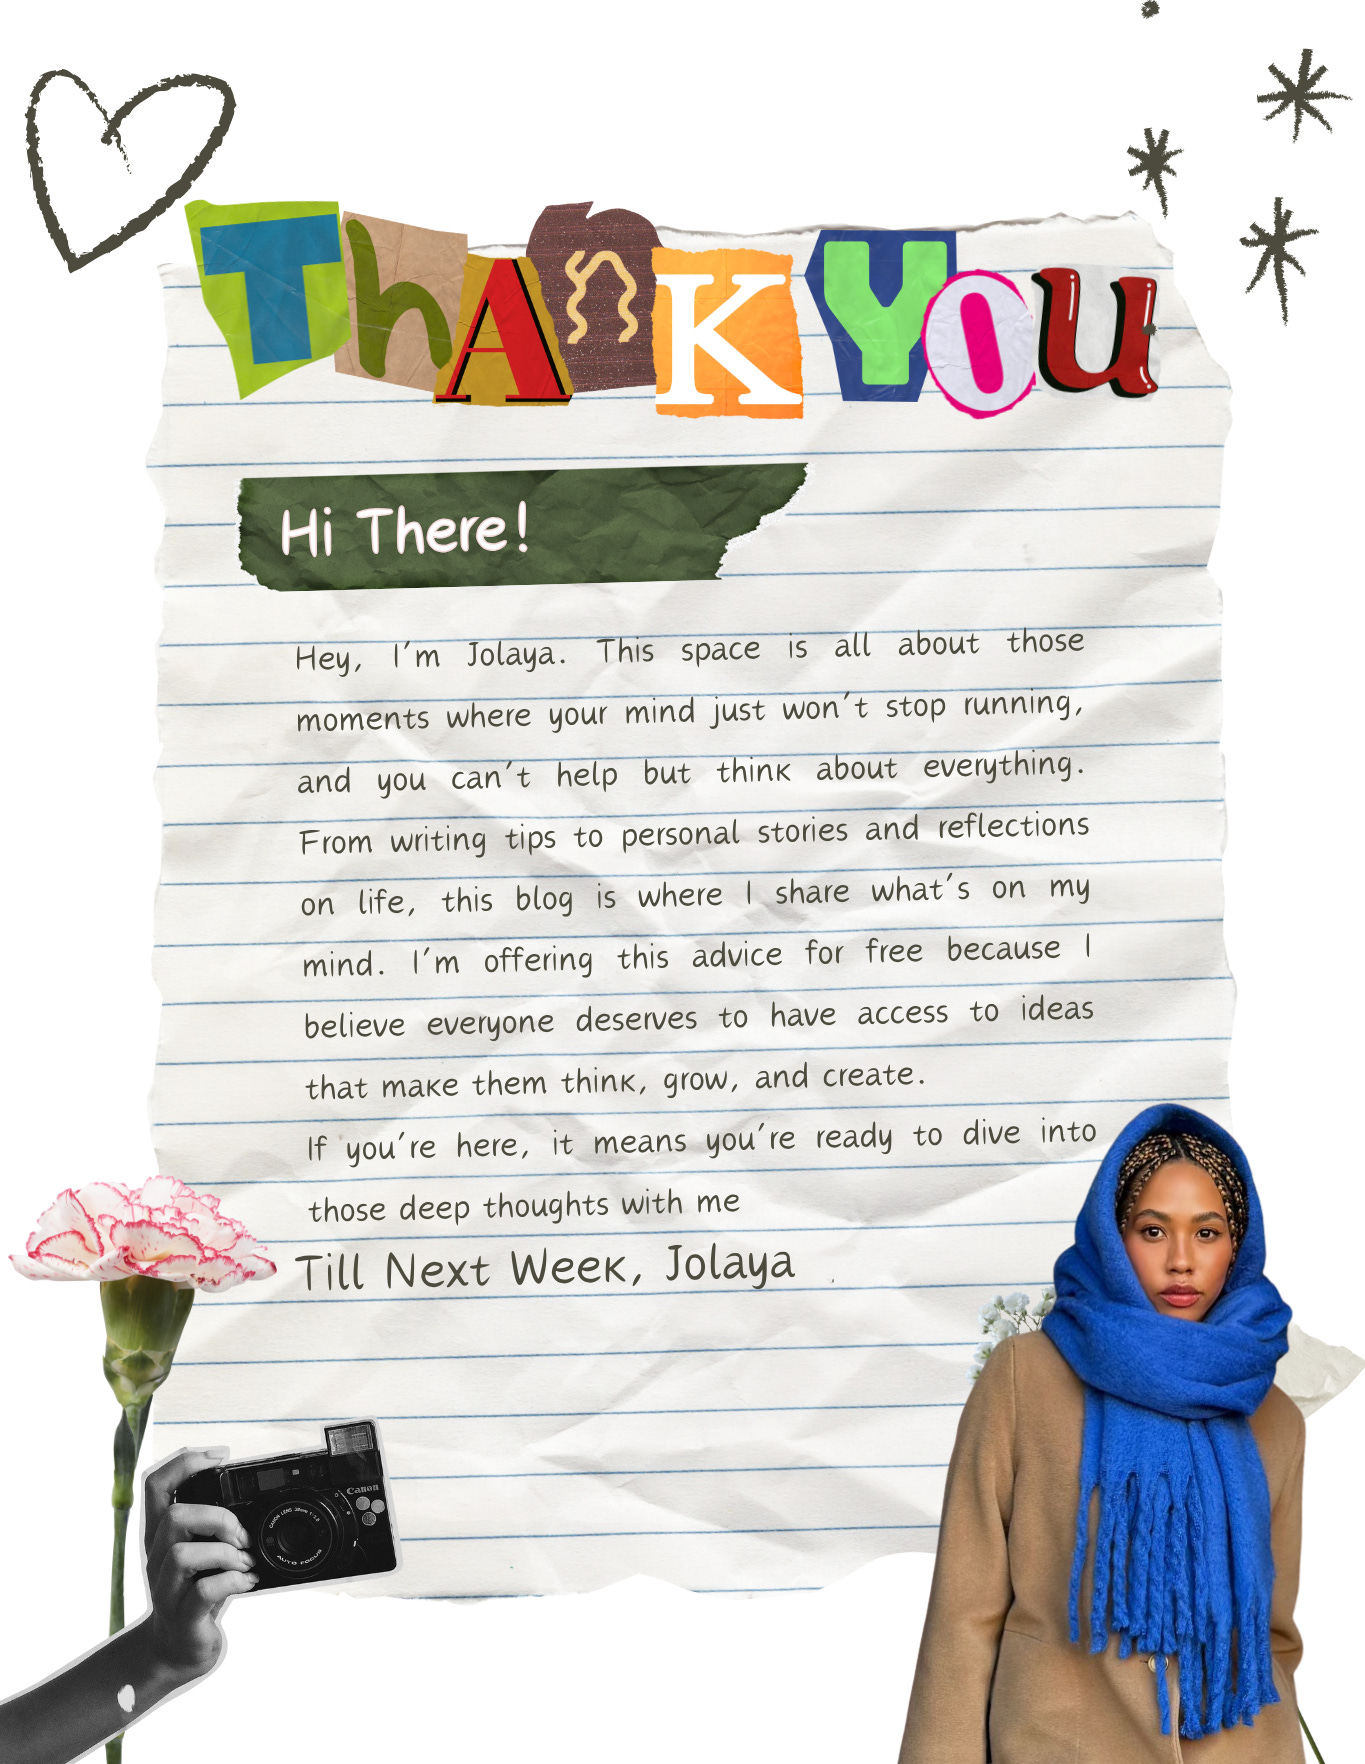 ThAnK YOu
Hi There!
Hey, I'm Jolaya. This space is all about those
moments where your mind just won't stop running,
and you can't help but think about everything.
From writing tips to personal stories and reflections
on life, this blog is where I share what's on my
mind. I'm offering this advice for free because I
believe everyone deserves to have access to ideas
that make them think, grow, and create.
If you're here, it means you're ready to dive into
those deep thoughts with me
Till Next Week, Jolaya
Canon
CANON LENS 38mm 1:2.8
AUTO FOCUS